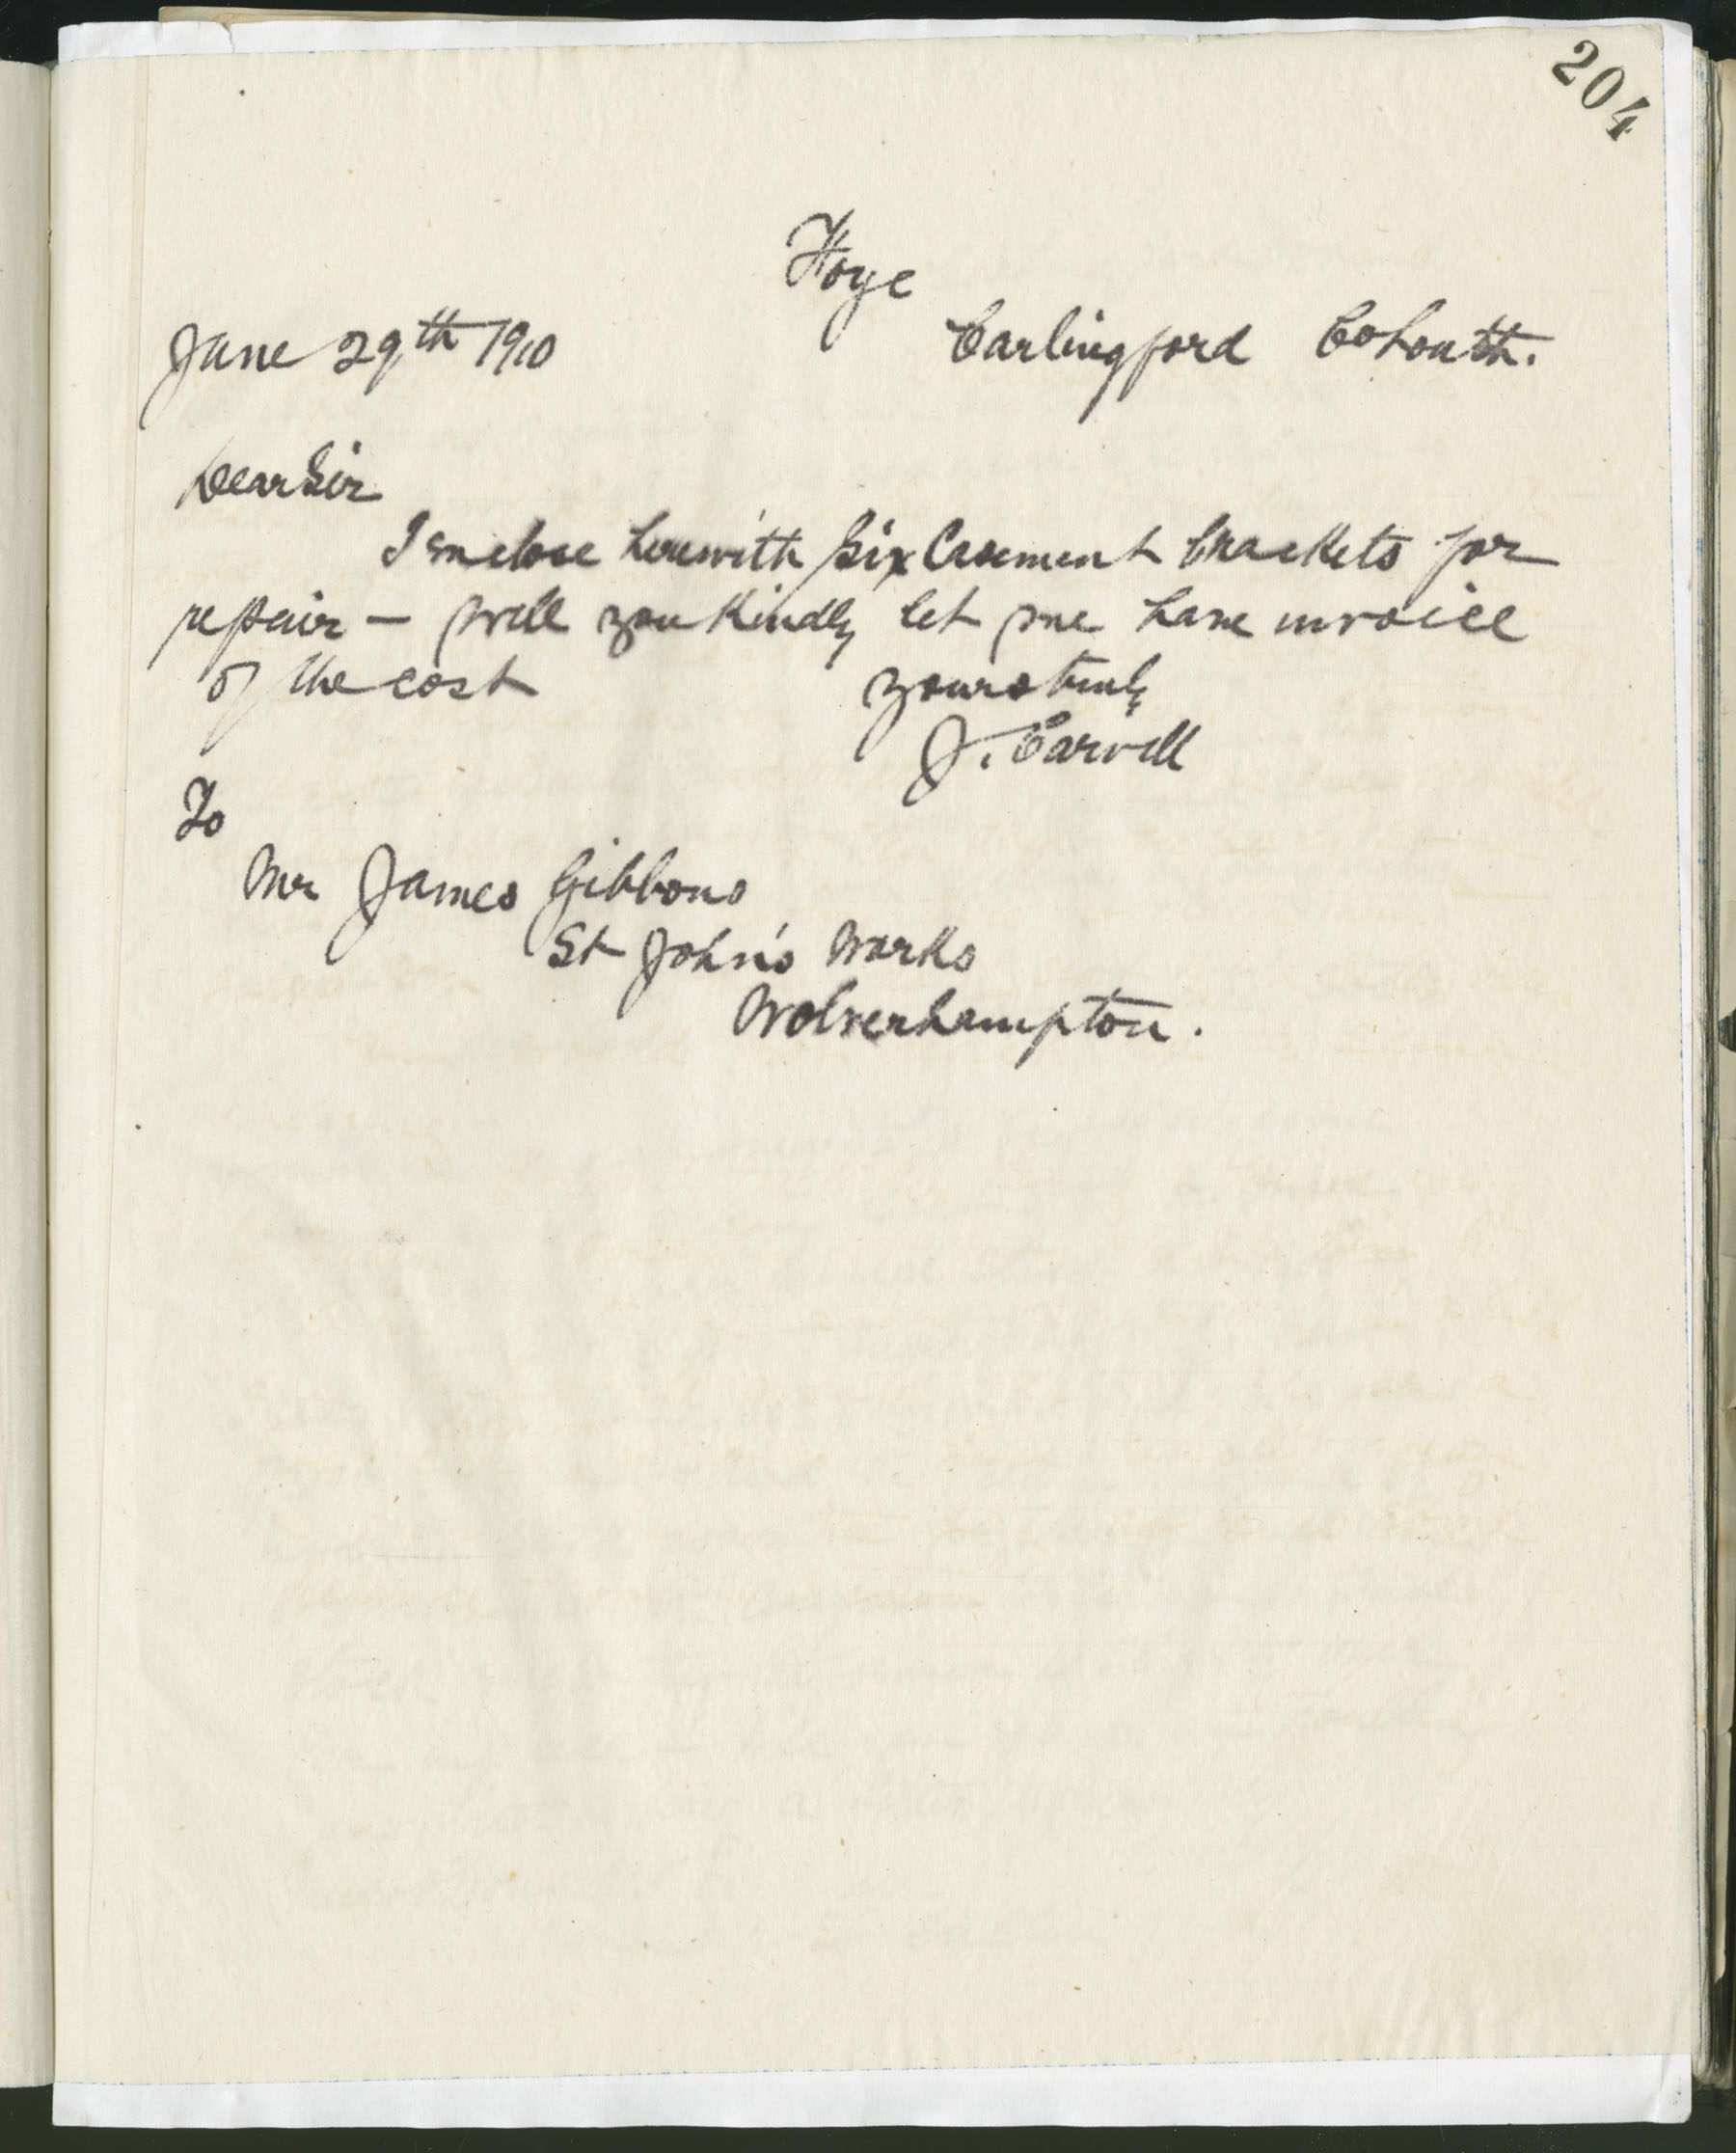 204
Foye
June 29th 1910 Carlingford Co Louth.
Dear Sir
I enclose herewith Six Casement brackets for
repair — will you kindly let me have invoice
of the cost yours truly
J. Carvill
To
Mr James Gibbons
St John's Works
Wolverhampton.